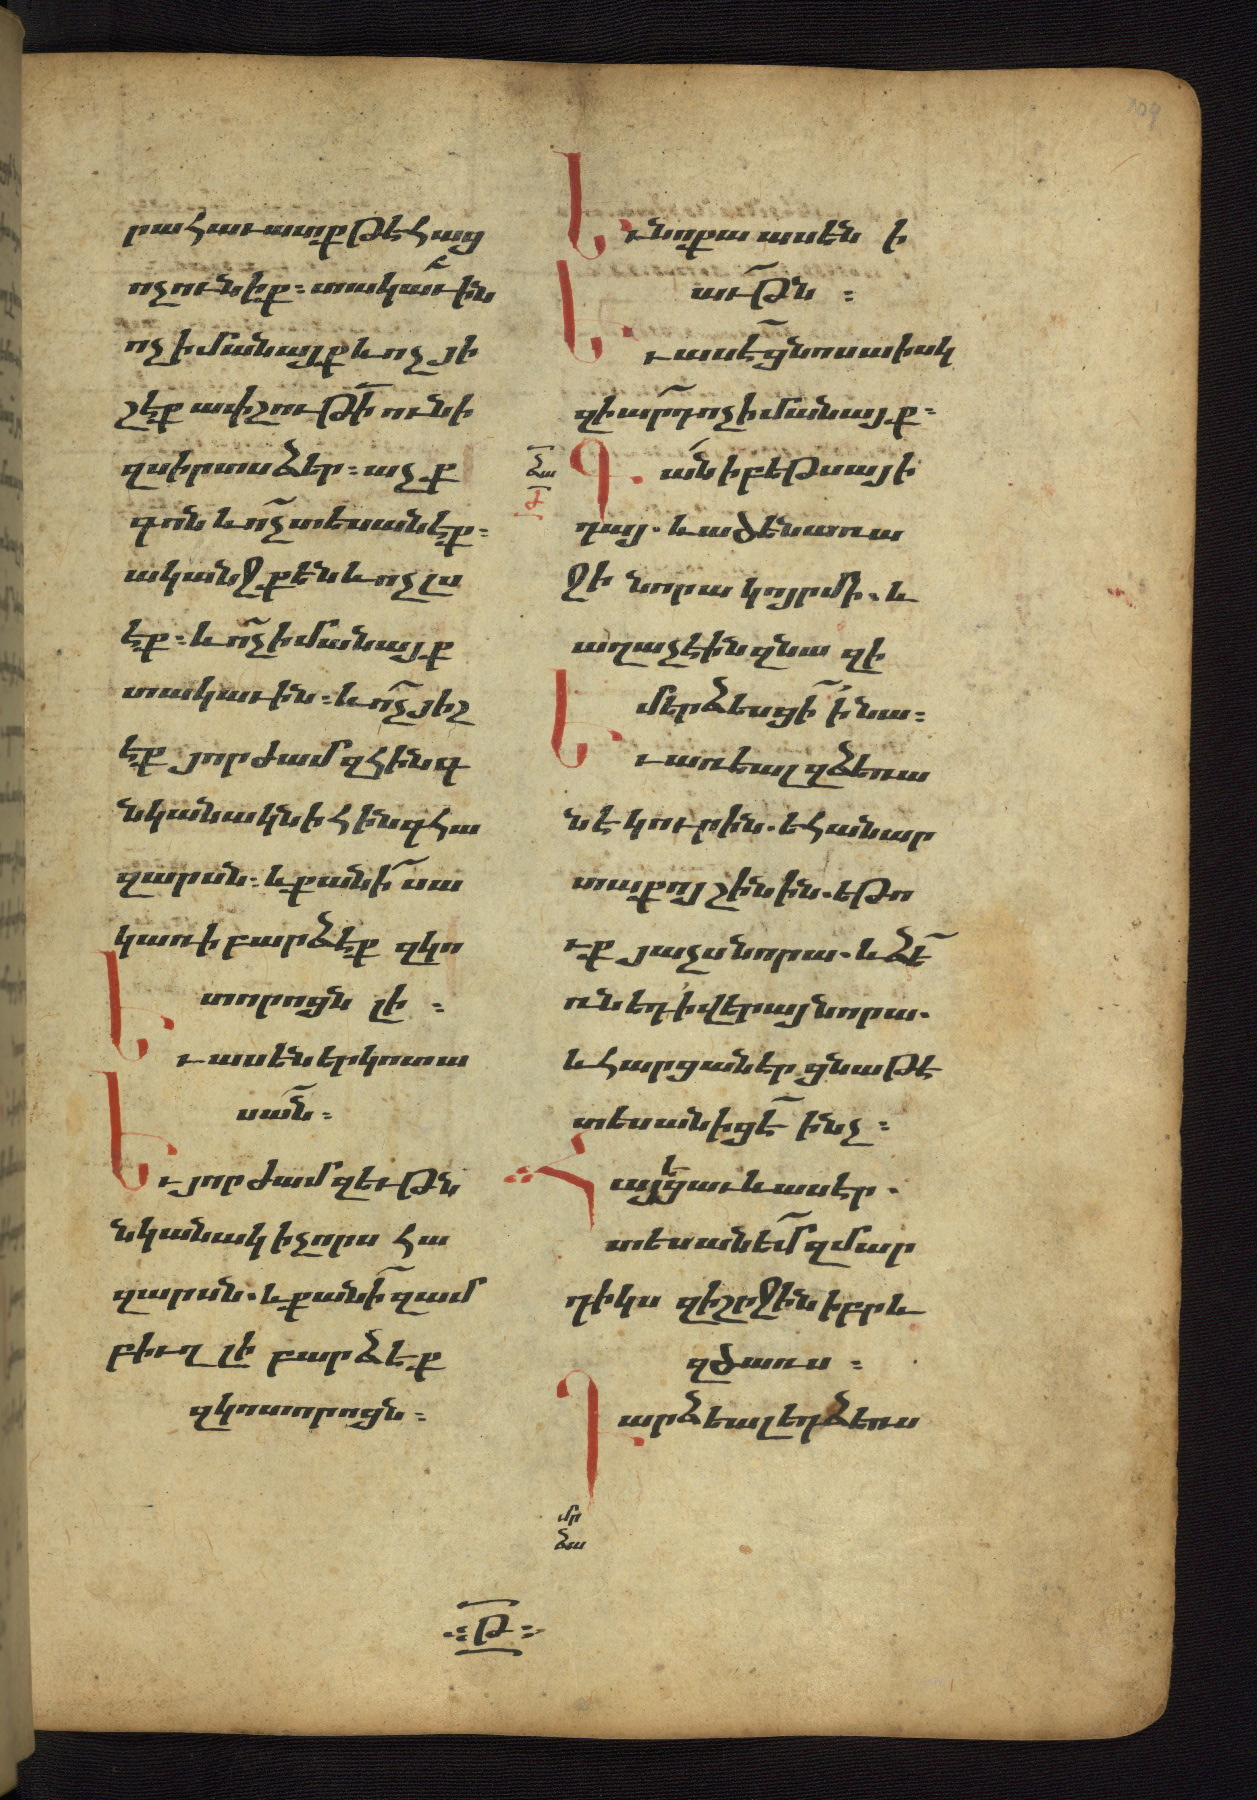 րահաւատք թէ հաց
ոչ ունիք։ տակաւին
ոչ իմանայք և ոչ յի
շէք ափշութի ունի
զսիրտս ձեր։ աչք
գոն և ոչ տեսանէք։
ականջք են և ոչ լս
էք։ և ոչ իմանայք
տակաւին։ և ոչ յիշ
էք յորժամ զհինգ
նկանակն ի հինգ հա
զարսն։ և քանի սա
կառի բարձէք զկո
տորոցն լի ։
Եւ ասեն երկոտա
սան։
Եւ յորժամ զեւթն
նկանակ ի չորս հա
զարսն. և քանի զամ
բիւղ լի բարձէք
զկոտորոցն։
Եւ նոքա ասեն ի
ւթն ։
Եւ ասէ ցնոսա իսկ
զիարդ ոչ իմանայք։
Գան ի բեթսայի
դայ. և ածեն առա
ջի նորա կոյր մի. և
աղաչէին զնա զի
մերձեսցի ի նա։
Եւ առեալ զձեռա
նէ կուրին. եհան ար
տաքոյ շինին. եթո
ւք յաչս նորա. և ձե
ռն եդ ի վերայ նորա.
և հարցանէր ցնա թէ
տեսանիցէ ինչ ։
Հայեցաւ և ասէր.
տեսանեմ զմար
դիկս զի շրջին իբրև
զծառս ։
Դարձեալ եդ ձեռս
ձա
մր
ձա
։Թ։
109